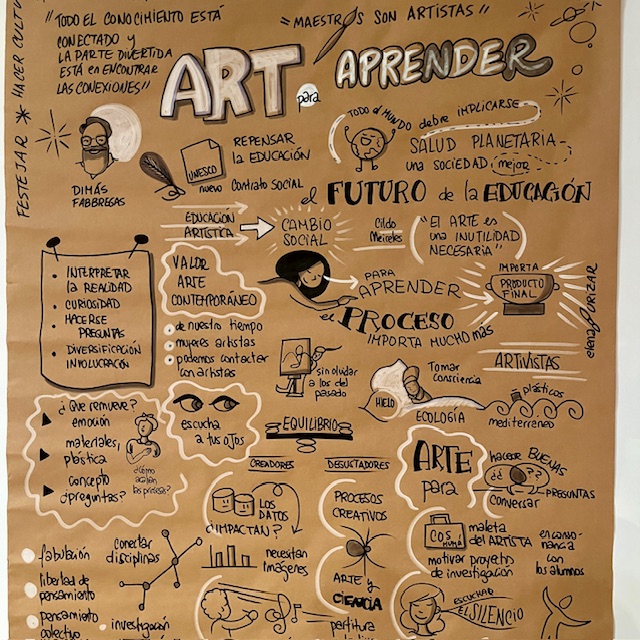 FESTEJAR * HACER CULTU
"TODO EL CONOCIMIENTO ESTÁ
CONECTADO y
LA PARTE DIVERTIDA
ESTÁ en ENCONTRAR
LAS CONEXIONES"
"MAESTROS SON ARTISTAS"
ART para APRENDER
DIMÁS
FABBREGAS
UNESCO
REPENSAR
la EDUCACIÓN
nuevo contrato social
TODO el MUNDO debre IMPLICARSE
SALUD PLANETARIA
una SOCIEDAD mejor
el FUTURO de la EDUCACIÓN
EDUCACIÓN
ARTÍSTICA
CAMBIO
SOCIAL
Cildo
Meireles
"EL ARTE es
una INUTILIDAD
NECESARIA"
• INTERPRETAR
la REALIDAD
• CURIOSIDAD
• HACERSE
PREGUNTAS
• DIVERSIFICACIÓN
INVOLUCRACIÓN
VALOR
ARTE
CONTEMPORÁNEO
de nuestro tiempo
mujeres artistas
podemos contactar
con artistas
PARA
APRENDER
IMPORTA
PRODUCTO
FINAL
el PROCESO
IMPORTA MUCHO MAS
elenaPURIZAR
sin olvidar
a los del
pasado
ARTIVISTAS
Tomar
consciencia
HIELO
ECOLOGÍA
plásticos
mediterraneo
¿Que remueve?
emoción
materiales,
plástica
concepto
¿preguntas?
¿Cómo
escucha
a tus ojos
EQUILIBRIO
CREADORES
DEGUSTADORES
ARTE
para
hacerse BUENAS
¿¿ ??
PREGUNTAS
conversar
LOS
DATOS
¿IMPACTAN?
necesitan
Imágenes
PROCESOS
CREATIVOS
ARTE y
CIENCIA
maleta
del ARTISTA
motivar proyectos
de investigación
en conso-
nancia
con
los alumnos
fabulación
libertad de
pensamiento
pensamiento
colectivo
conectar
disciplinas
investigación
partitura
ESCUCHAR
EL SILENCIO